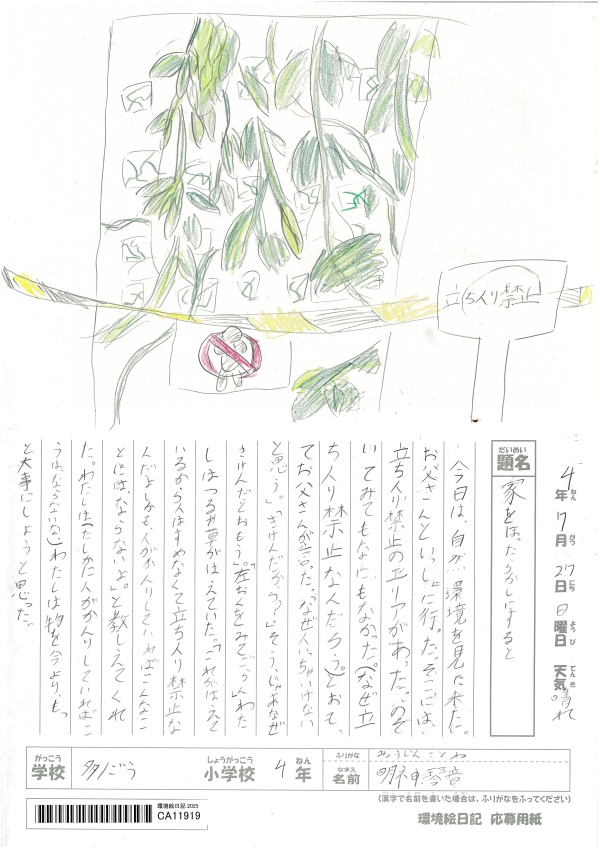 立ち入り禁止
4年7月27日日曜日 天気 晴れ
ねん がつ にち ようび てんき
だいめい
題名
家をほったらかしにすると
今日は、自然環境を見た来た。
お父さんといっしょに行った。そこには、
立ち入り禁止のエリアがあった。のぞ
いてみてもなにもなかった。(なぜ立
ち入り禁止なんだろう？)とおもっ
てお父さんが言った。「なぜ入っちゃいけない
と思う」「きけんだから？」「そう。じゃあなぜ
きけんだとおもう。「左おくをみてごらん」わた
しはつるや草がはえていた。「これがはえて
いるから人はすめなくて立ち入り禁止な
んだよしかも人がかんりしていればこんなこ
とにはならないよ。」と教しえてくれ
た。わたしは(たしかに人がかんりしていればこ
うは、ならないな)わたしは物を今よりも、もっ
と大事にしようと思った。
がっこう
学校
しょうがっこう
小学校 4年
ねん
ふりがな みょうじん ことね
なまえ
名前 明神琴音
(漢字で名前を書いた場合は、ふりがなをふってください)
環境絵日記 2025
CA11919
環境絵日記 応募用紙